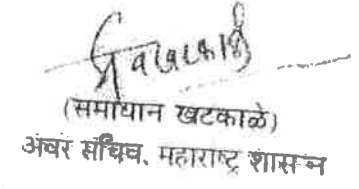 (समाधान खटकाळे)
अवर सचिव, महाराष्ट्र शासन